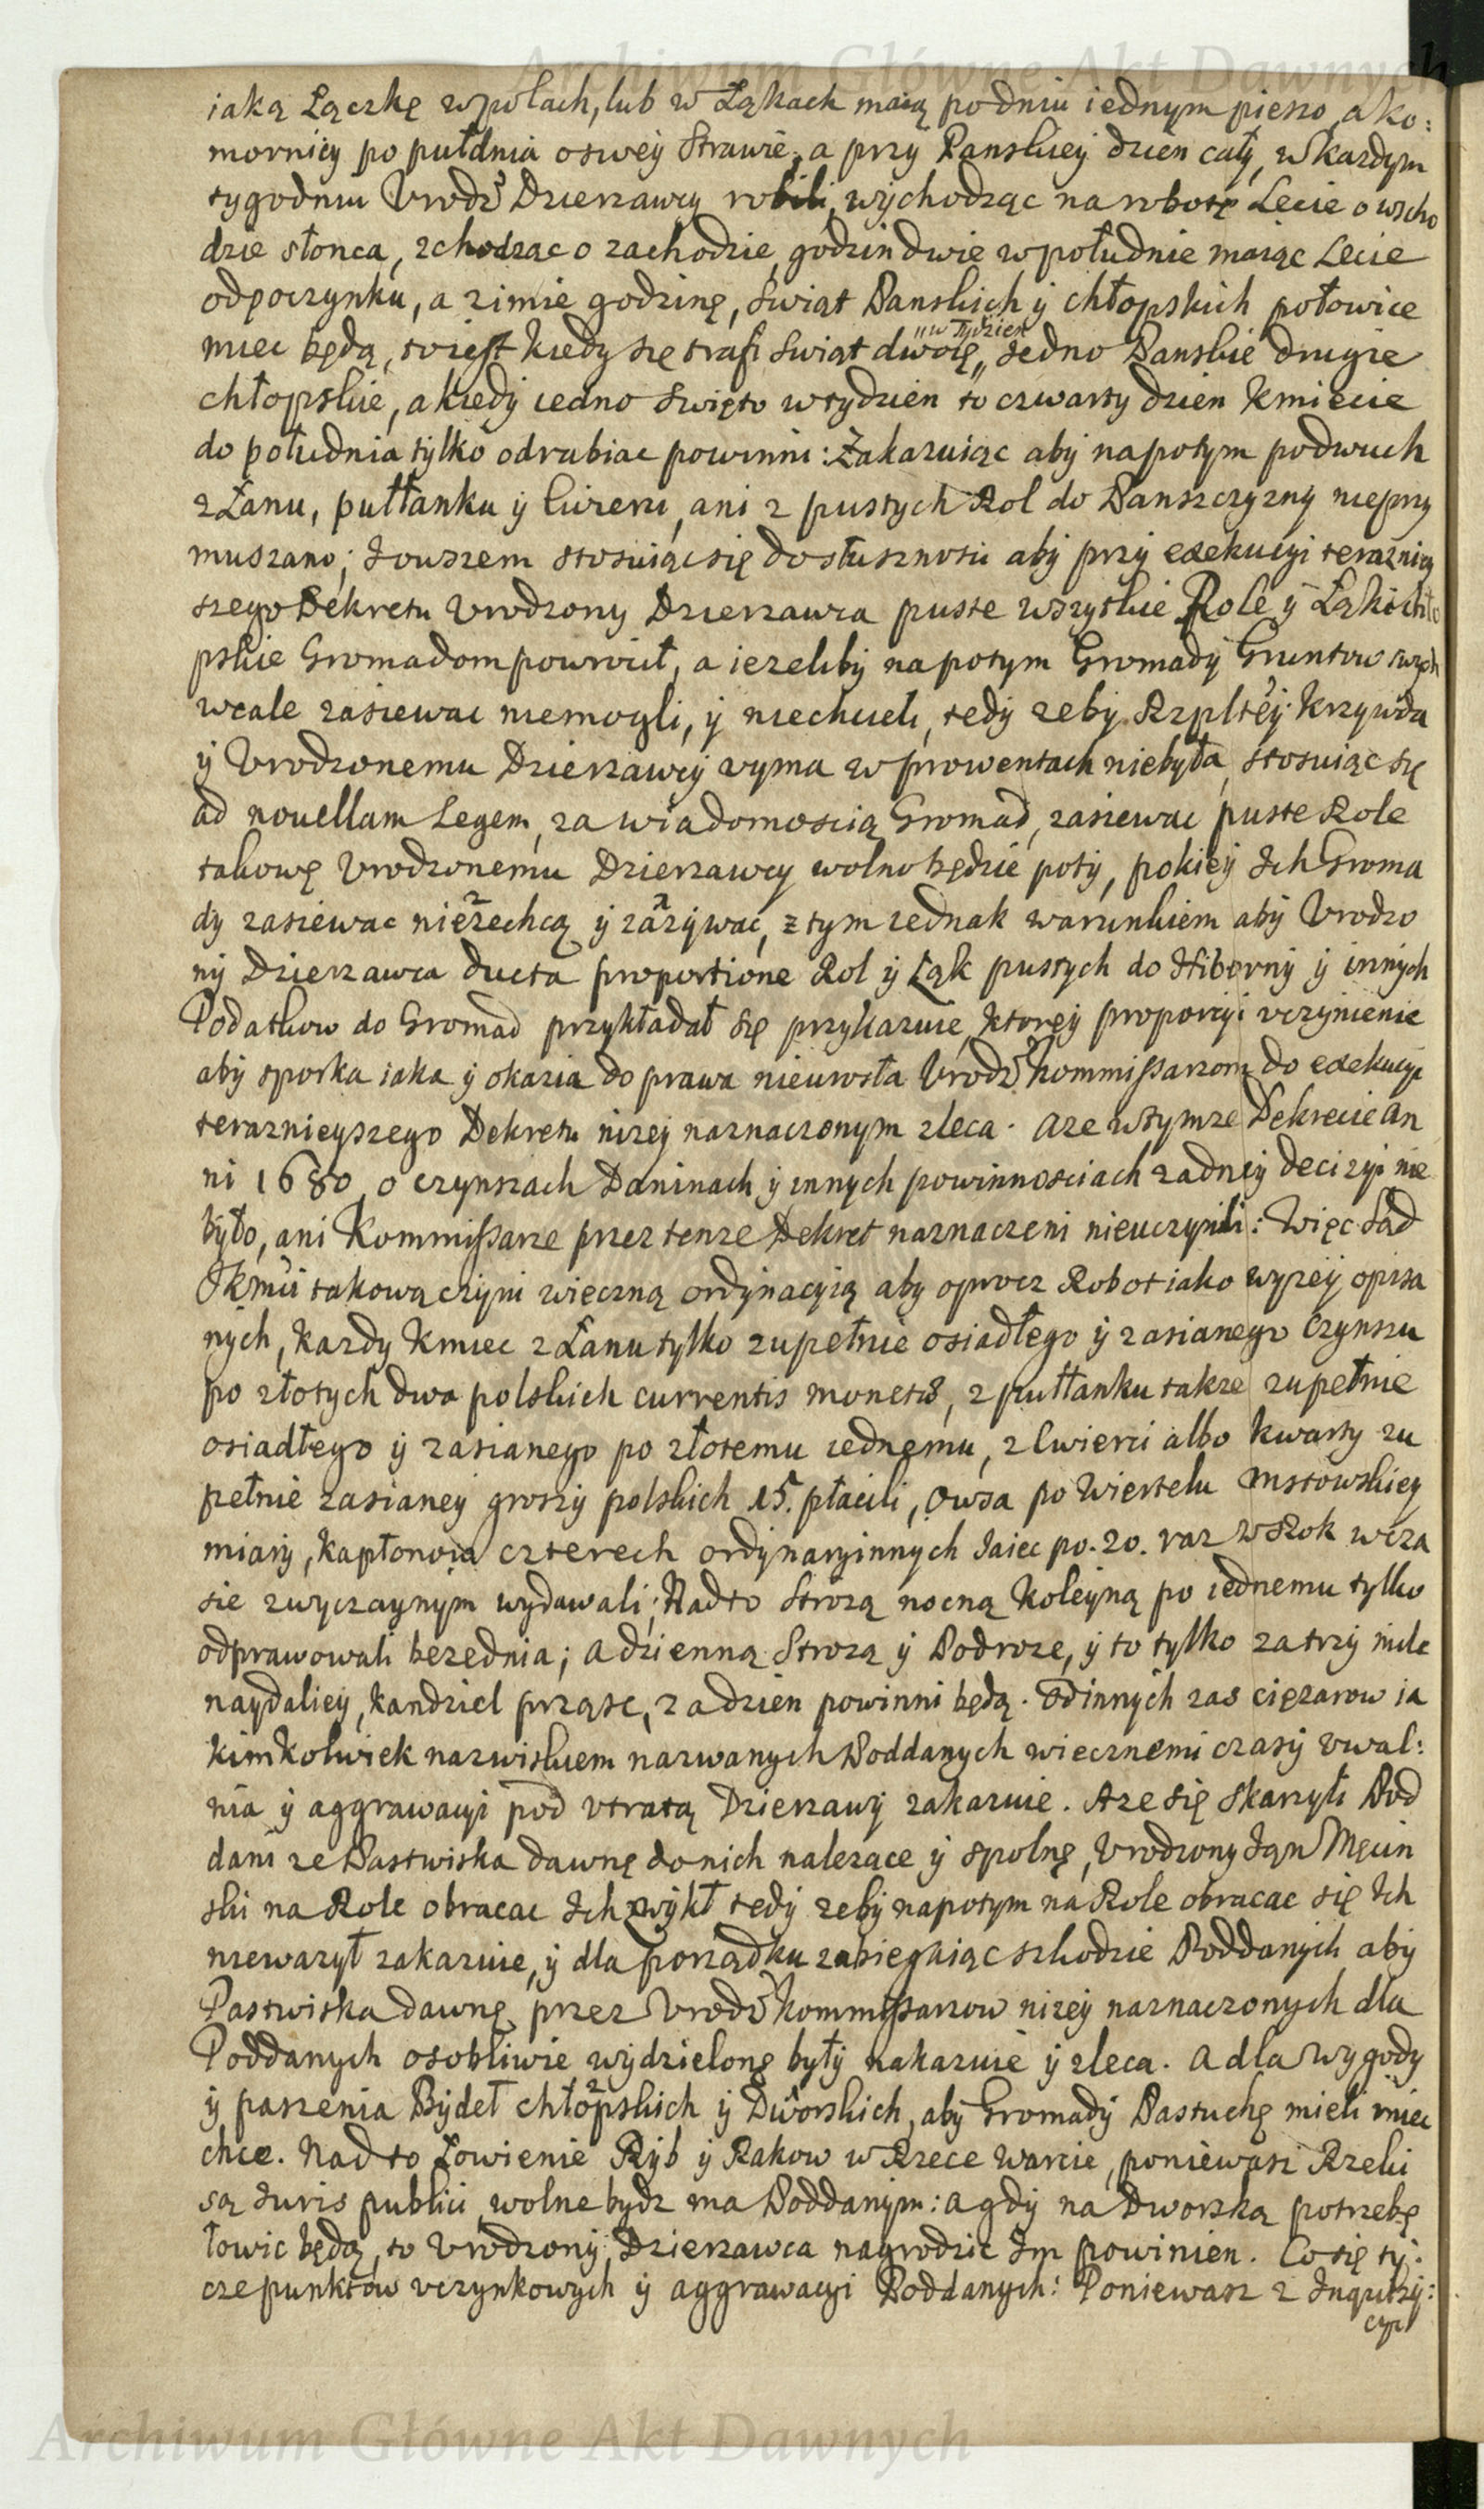 Archiwum Główne Akt Dawnych
iaką Łączkę w polach, lub w Łąkach maią po dniu iednym pieszo, a ko:
mornicy po pułdnia o swey Strawie, a przy Panskiey dzien cały, w kazdym
tygodniu Vrodz Dzierzawcy robili, wychodząc na robotę Lecie o wscho
dzie słonca, zchodząc o zachodzie, godzin dwie w południe maiąc Lecie
odpoczynku, a zimie godzinę, Swiąt Panskich y chłopskich połowice
miec będą, to iest kiedy się trafi Swiąt dwoię „w Tydzien„ Jedno Panskie drugie
chłopskie, a kiedy iedno Swięto w tydzien to czwarty dzien Kmiecie
do południa tylko odrabiac powinni: Zakazuiąc aby napotym podwuch
z Łanu, pułłanku y Cwierci, ani z pustych Rol do Panszczyzny nieprzy
muszano; Jowszem stosuiąc się do słusznosci aby przy exekucyi terazniey
szego Dekretu Vrodzony Dzierzawca puste wszystkie Role y Łąki chło
pskie Gromadom powrocił, a iezeliby napotym Gromady Gruntow swych
wcale zasiewac niemogli, y niechcieli, tedy zeby Rzpltey krzywda
y Vrodzonemu Dzierzawcy uyma w prowentach niebyła, stosuiąc się
ad novellam Legem, za wiadomoscią Gromad, zasiewac puste Role
takowę Vrodzonemu Dzierzawcy wolno będzie poty, pokiey Ich Groma
dy zasiewac niezechcą y zazywac, z tym iednak warunkiem aby Vrodzo
ny Dzierzawca ducta proportione Rol y Łąk pustych do Hiberny y innych
Podatkow do Gromad przykładał się przykazuie, ktorey proporcyi vczynienie
aby sporka iaka y okazia do prawa nieurosła Vrodz Kommissarzom do exekucyi
teraznieyszego Dekretu nizey naznaczonym zleca. A ze w tymze Dekrecie An
ni 1680 o czynszach Daninach y innych powinnosciach zadney decizyi nie
było, ani Kommissarze przez tenze Dekret naznaczeni nieuczynili: Więc Sąd
JKMci takową czyni wieczną ordynacyią aby oprocz Robot iako wyzey opisa
nych, kazdy Kmiec z Łanu tylko zupełnie osiadłego y zasianego Czynszu
po złotych dwa polskich currentis monetæ, z pułłanku takze zupełnie
osiadłego y zasianego po złotemu iednemu, z Cwierci albo kwarty zu
pełnie zasianey groszy polskich 15. płacili, Owsa po Wiertelu Mstowskiey
miary, kapłonow czterech ordynaryinnych Jaiec po. 20. raz w Rok w cza
sie zwyczaynym wydawali; Nadto Strozą nocną koleyną po iednemu tylko
odprawowali bezednia; a dzienną Strozą y Podroze, y to tylko za trzy mile
naydaliey, kandziel prząsc, za dzien powinni będą. Od innych zas cięzarow ia
kimkolwiek nazwiskiem nazwanych Poddanych wiecznemi czasy vwal:
nia y aggrawacyi pod vtratą Dzierzawy zakazuie. A ze się skarzyli Pod
dani ze Pastwiska dawnę do nich nalezace y spolnę, Vrodzony Jan Męcin
ski na Role obracac Ich zwykł tedy zeby napotym na Role obracac się Ich
niewazył zakazuie, y dla porządku zabiegaiąc szkodzie Poddanych aby
Pastwiska dawnę przez Vrodz Kommissarzow nizey naznaczonych dla
Poddanych osobliwie wydzielonę były nakazuie y zleca. A dla wygody
y paszenia Bydeł chłopskich y Dworskich, aby Gromady Pastuchę mieli miec
chce. Nad to Łowienie Ryb y Rakow w Rzece Warcie, poniewasz Rzeki
są Juris publici, wolne bydz ma Poddanym: a gdy na Dworską potrzebę
łowic będą, to Vrodzony Dzierzawca nagrodzic Jm powinien. Co się ty:
cze punktow vczynkowych y aggrawacyi Poddanych: Poniewasz z Inquizy:
cyi
Archiwum Główne Akt Dawnych